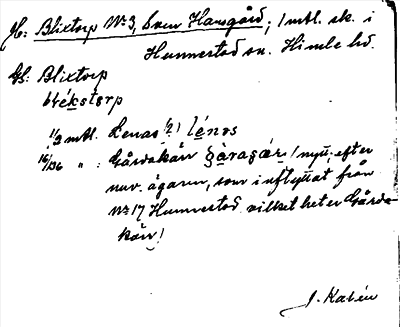 Jb: Blixtorp No 3, Sven Hansgård; 1 mtl. sk. i
Hunnestad sn. Himle hd.
Gs: Blixtorp
blékstorp
1/3 mtl. Lenas (2) lénas
16/136 " : Gårdakärr gàragǽr (nytt, efter
nuv. ägaren, som inflyttat från
No 17 Hunnestad vilket heter Gårda-
kärr)
J. Kalén